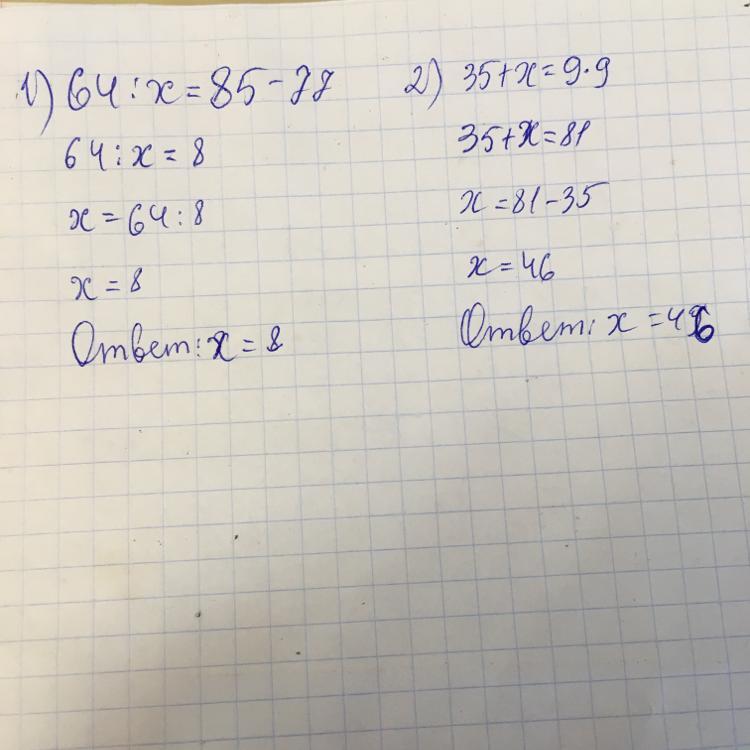 1) 64 : x = 85 - 77
64 : x = 8
x = 64 : 8
x = 8
Ответ: x = 8
2) 35 + x = 9 · 9
35 + x = 81
x = 81 - 35
x = 46
Ответ: x = 46